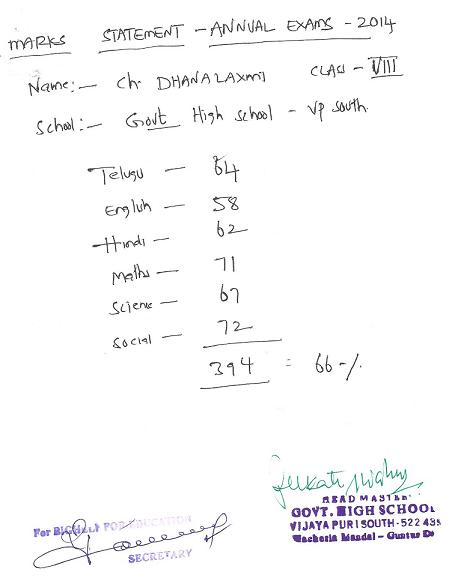 MARKS STATEMENT - ANNUAL EXAMS - 2014
Name:- Ch DHANALAXMI CLASS - VIII
School:- Govt High school - Vp South.
Telugu - 64
English - 58
Hindi - 62
Maths - 71
Science - 67
Social - 72
394 = 66-/.
HEAD MASTER
GOVT. HIGH SCHOOL
VIJAYAPURI SOUTH-522 439
Macherla Mandal - Guntur Dt
For EDUCATION
SECRETARY